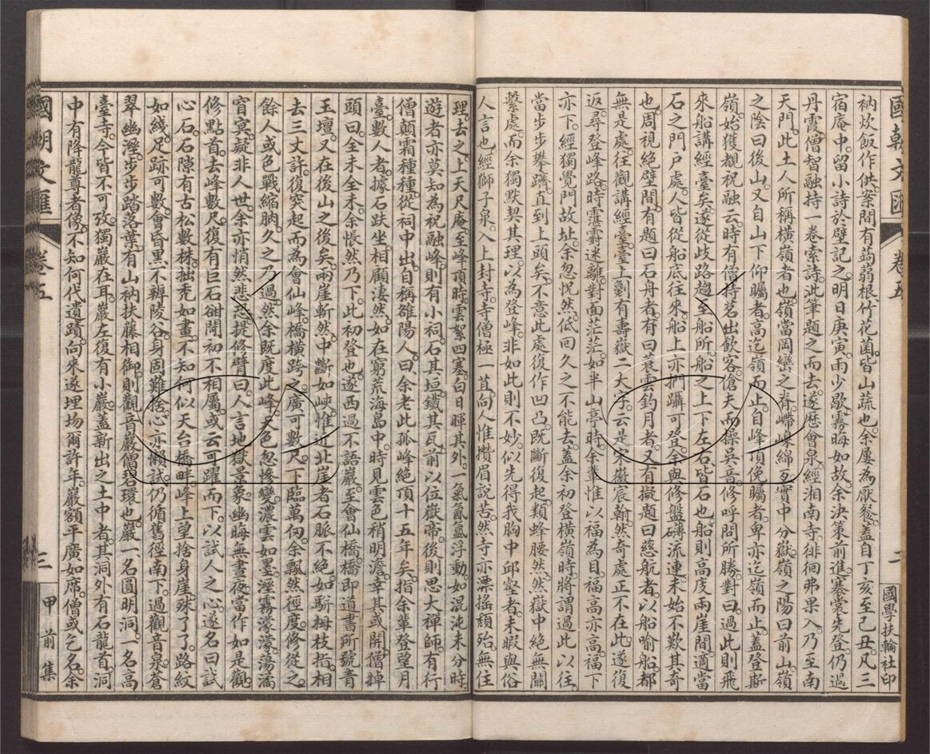 國朝文匯 卷五 二 國學扶輪社印
衲炊飯作供案間有蒟蒻根竹花菌皆山蔬也余屢為厭餐蓋自丁亥至己丑凡三
宿庵中留小詩於壁記之明日庚寅雨少歇霧晦如故余決策前進褰裳先登仍過
丹霞僧智融持一卷索詩泚筆題之而去遂歷會泉經湘南寺徘徊弗果入乃至南
天門此土人所稱橫嶺者也嶺當岡巒之脊嵲綿亙實中分嶽嶺之陽曰前山嶺
之陰曰後山又自山下仰矚者高迄嶺而止自峰頂俛矚者卑亦迄嶺而止蓋登斯
嶺始獲覩祝融云時有僧持茗出飲客傖夫而操吳音修呼問所勝對曰過此則飛
來船講經臺矣遂從歧路趨至船所船之上下左右皆石也船則高庋兩崖間適當
石之門戶處人皆從船底往來船上亦捫躡可登余與修盤礴流連未始不歎其奇
也周視絕壁間有題曰石舟者有曰裁雲釣月者又有擬題曰慈航者以船喻船都
無是處往觀講經臺臺上劖有壽嶽二大字云是宋徽宸翰然奇處正不在此遂復
返尋登峰路時雲霧迷離對面茫茫如半山亭時余輩惟以福為目福高亦高福下
亦下經獨覺門故址余忽怳然低回久之不能去蓋余初登橫嶺時將謂過此以往
當步步攀躋直到上頭矣不意此處復作凹凸既斷復起類蜂腰然然嶽中絕無關
鍳處而余獨默契其理以為登峰非如此則不妙似先得我胸中邱壑者未暇與俗
人言也經獅子泉入上封寺寺僧極一苴向人惟攢眉說苦然寺亦漂搖頹殆無住
理去之上天尺庵至峰頂時雲絮四塞白日暉其外一氣氤氳浮動如混沌未分時
遊者亦莫知為祝融峰則有小祠石其垣鐵其瓦前以位嶽帝後則思大禪師有行
僧顛霜種種從祠中出自稱邵陽人曰余老此孤峰絕頂十五年矣指余輩登望月
臺數人者據石趺坐相顧淒然如在窮荒海島中時見雲色稍明澹幸其或開僧掉
頭曰全未全未余悵然乃下此初登也遂西過不語巖至會仙橋橋即道書所號青
玉壇又在後山之後矣兩崖斬然中斷如峽惟北崖者石脈不絕如駢拇枝指相
去三丈許復突起而為會仙峰橋橫跨之廣可數尺下臨萬仞余飄然徑度修從之
餘人或色戰縮朒久之乃過然余既度此峰天色忽慘變濃雲如墨淫霧濛濛蕩潏
窅冥疑非人世余亦悄然悲恐援修臂曰人言地獄景象幽晦無晝夜當作如是觀
修點首去峰數尺復有巨石囓開初不相屬或云可躍而下以試人之心遂名曰試
心石石隙有古松數株拙禿如畫不知何似天台橋畔峰上望捨身崖殊了了路紋
如綫足跡可數會昏黑不辨陵谷身固難捨心亦懶試仍循舊徑南下過觀音泉蒼
翠幽溼步步踏落葉有山衲扶藤相御則觀音巖僧若環也巖一名圓明洞一名高
臺寺今皆不可攷獨巖在耳巖左復有小巖蓋新出之土中者其洞外有石龍首洞
中有降龍尊者像不知何代遺蹟向來遂埋塲爾許年巖額平廣如席僧或乞名余
國朝文匯 卷五 三 甲前集